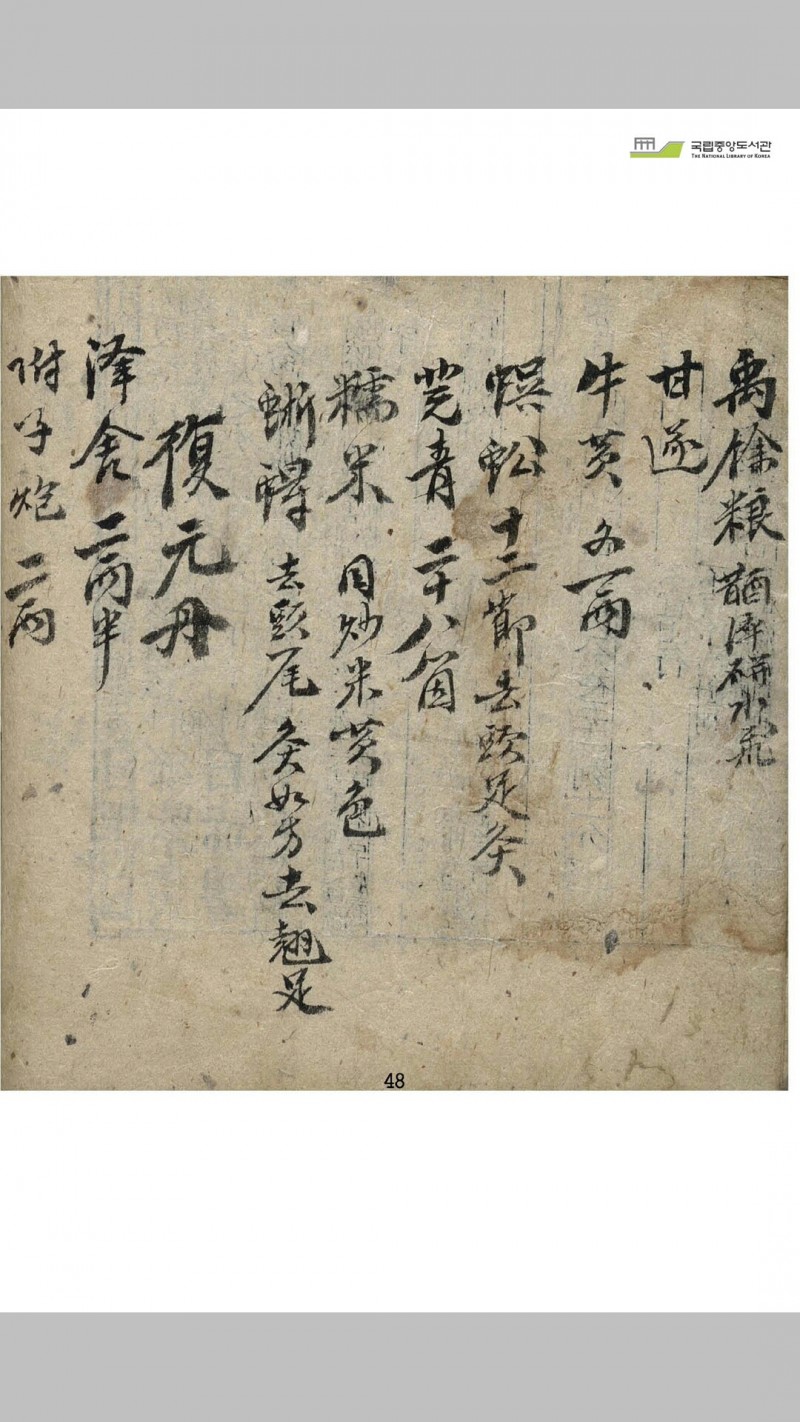 국립중앙도서관
THE NATIONAL LIBRARY OF KOREA
禹餘粮 醋淬研水飛
甘遂
牛黃 各一兩
蜈蚣 十二節去頭足灸
芫青 二十八箇
糯米 同炒米黃色
蜥蜴 去頭尾灸如方去翹足
復元丹
泽舍 二兩半
附子炮 二兩
48